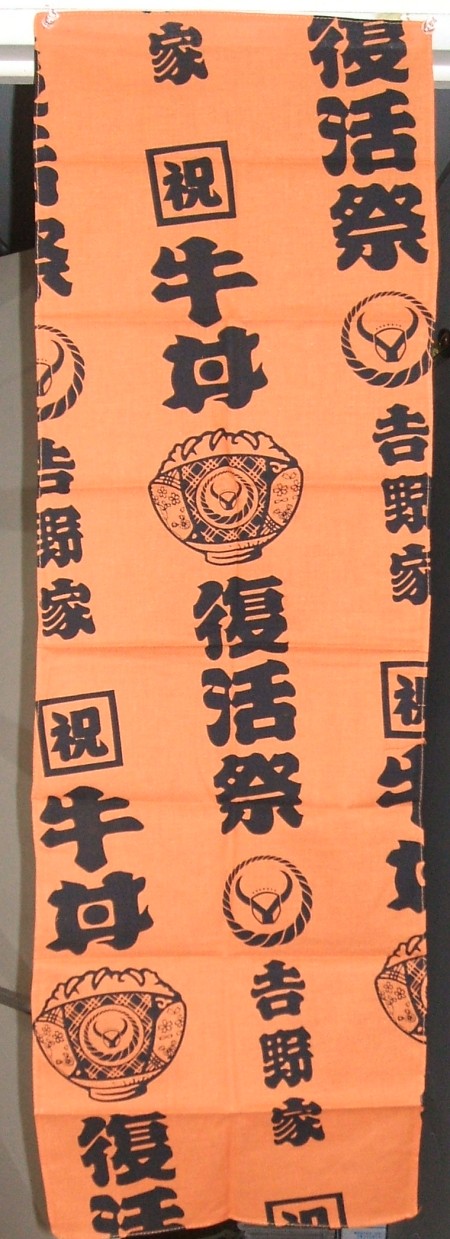 復活祭
吉野家
祝
牛丼
家
祝
牛丼
復活祭
吉野家
祝
活祭
吉野家
祝
牛丼
復活